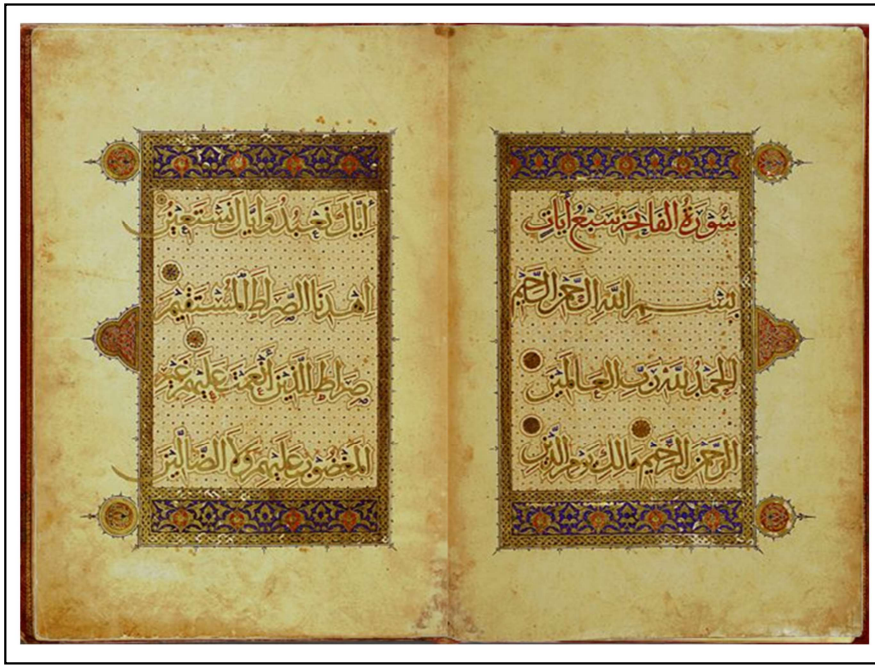 سُورَةُ الفَاتِحَة سَبْعُ أيَاتٍ
بِسْمِ اللهِ الرَّحْمٰنِ الرَّحِيمِ
الحَمْدُ لِلّهِ رَبِّ العَالَمِينَ
الرَّحْمٰنِ الرَّحِيمِ مَالِكِ يَوْمِ الدِّينِ
إِيَّاكَ نَعْبُدُ وَإِيَّاكَ نَسْتَعِينُ
اِهْدِنَا الصِّرَاطَ المُسْتَقِيمَ
صِرَاطَ الَّذِينَ أَنْعَمْتَ عَلَيْهِمْ غَيْرِ
المَغْضُوبِ عَلَيْهِمْ وَلَا الضَّالِّينَ